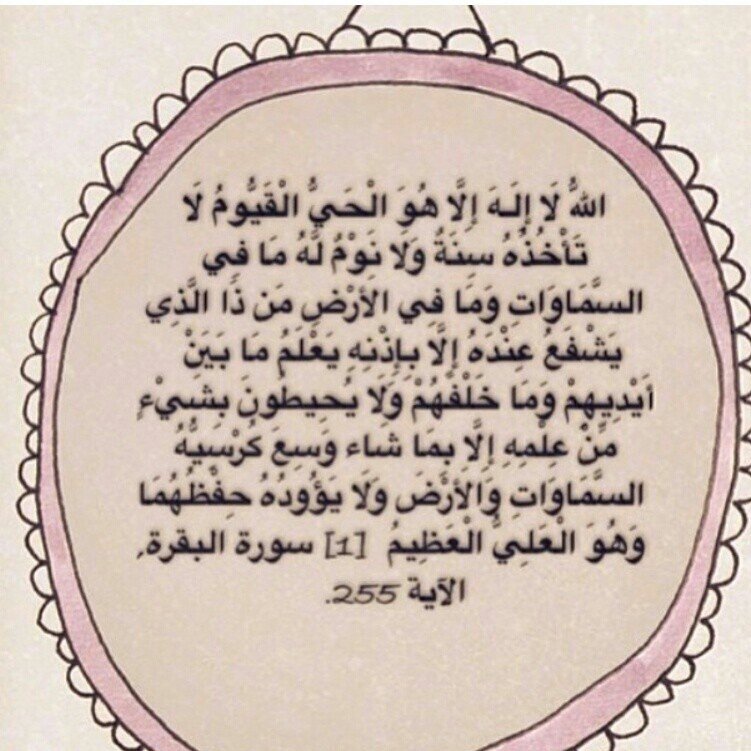 اللَّهُ لَا إِلَـٰهَ إِلَّا هُوَ الْحَيُّ الْقَيُّومُ لَا
تَأْخُذُهُ سِنَةٌ وَلَا نَوْمٌ لَّهُ مَا فِي
السَّمَاوَاتِ وَمَا فِي الْأَرْضِ مَن ذَا الَّذِي
يَشْفَعُ عِنْدَهُ إِلَّا بِإِذْنِهِ يَعْلَمُ مَا بَيْنَ
أَيْدِيهِمْ وَمَا خَلْفَهُمْ وَلَا يُحِيطُونَ بِشَيْءٍ
مِّنْ عِلْمِهِ إِلَّا بِمَا شَاء وَسِعَ كُرْسِيُّهُ
السَّمَاوَاتِ وَالْأَرْضَ وَلَا يَؤُودُهُ حِفْظُهُمَا
وَهُوَ الْعَلِيُّ الْعَظِيمُ [1] سورة البقرة,
الآية 255.